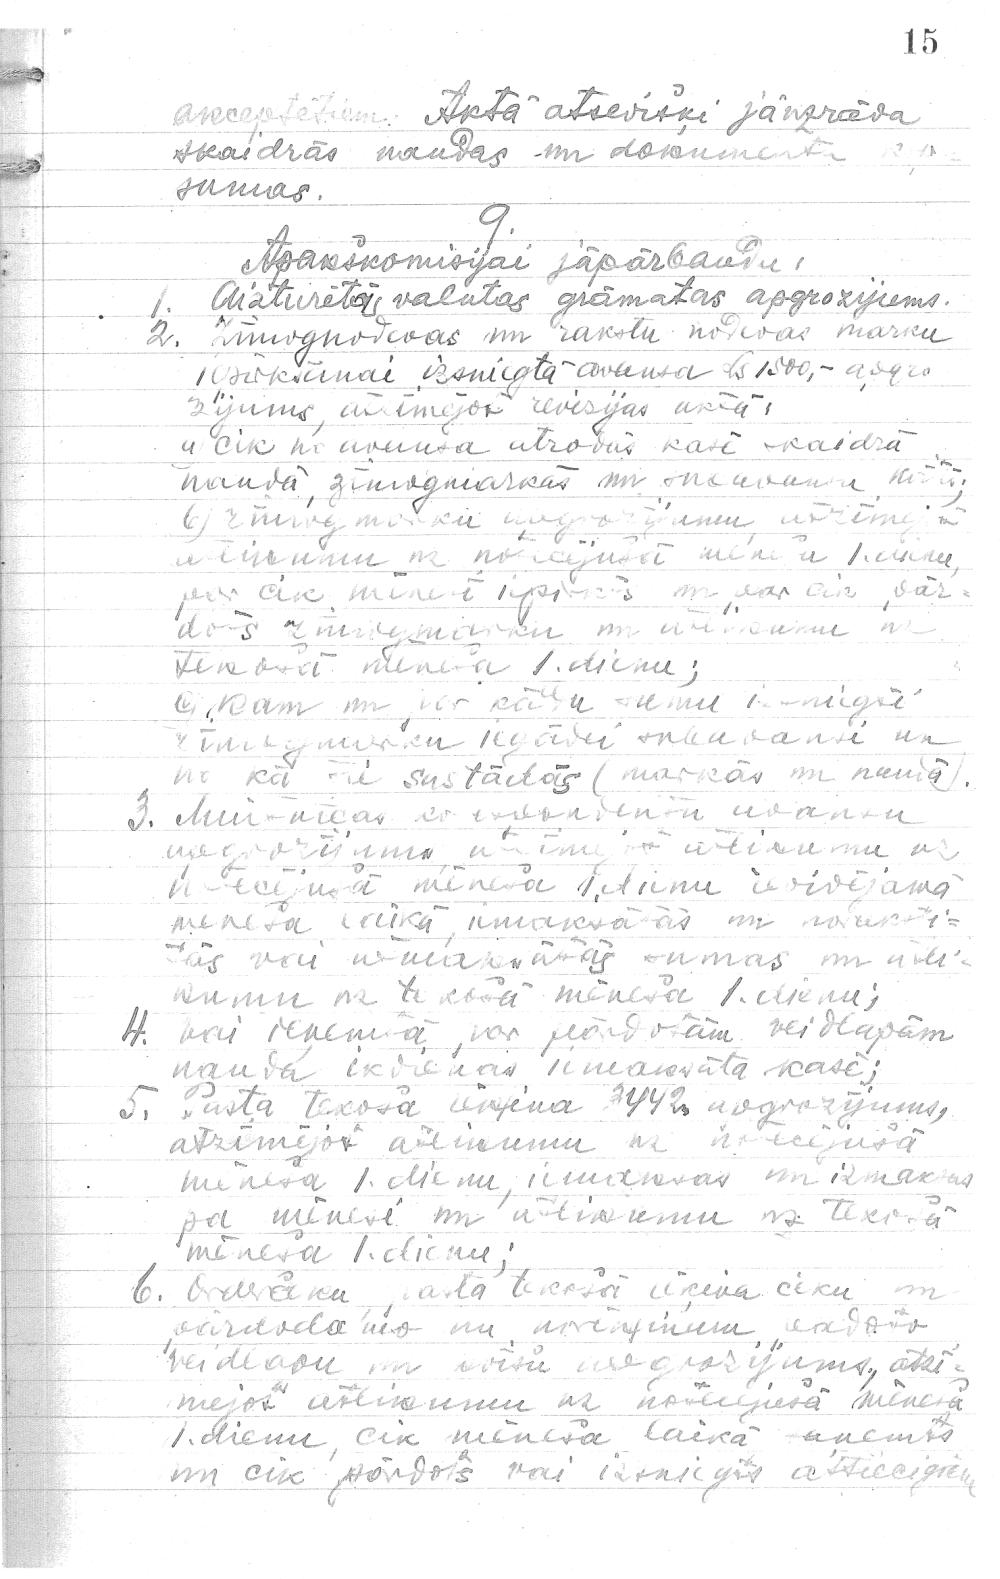 15
akceptētiem. Aktā atsevišķi jāuzrāda
skaidrās naudas un dokumentu
sumas.
9.
Apakškomisijai jāpārbauda:
1. Aizturētās valutas grāmatas apgrozījums.
2. Zīmognodevas un rakstu nodevas marku
iepirkšanai izsniegtā avansa Ls 1500,- apgro
zījums, atzīmējot revizijas aktā:
a) cik no avansa atrodas kasē skaidrā
naudā, zīmogmarkās un subavansu veidā;
b) zīmogmarku apgrozījumu, atzīmējot
atlikumu uz notecējušā mēneša 1. dienu,
par cik mēnesī iepirkts un par cik pār-
dots zīmogmarku un atlikumu uz
tekošā mēneša 1. dienu;
c) kam un par kādu sumu izsniegti
zīmogmarku iegādei subavansi un
no kā tie sastādās (markās un naudā).
3. Muitnīcas korespondentu avansu
apgrozījums, atzīmējot atlikumu uz
notecējušā mēneša 1. dienu, revidējamā
mēneša laikā iemaksātās un norakstī-
tās vai izmaksātās sumas un atli-
kumu uz tekošā mēneša 1. dienu;
4. vai ieņemtā par pārdotām veidlapām
nauda ikdienas iemaksāta kasē;
5. Pasta tekoša rēķina 3442 apgrozījums,
atzīmējot atlikumu uz notecējušā
mēneša 1. dienu, iemaksas un izmaksas
pa mēnesi un atlikumu uz tekošā
mēneša 1. dienu;
6. Orderčeku, pasta tekošā rēķina čeku un
pārdodamo un norēķinam padoto
veidlapu un apgrozījums, atzī-
mējot atlikumu uz notecējušā mēneša
1. dienu, cik mēneša laikā saņemts
un cik pārdots vai izsniegts attiecīgiem